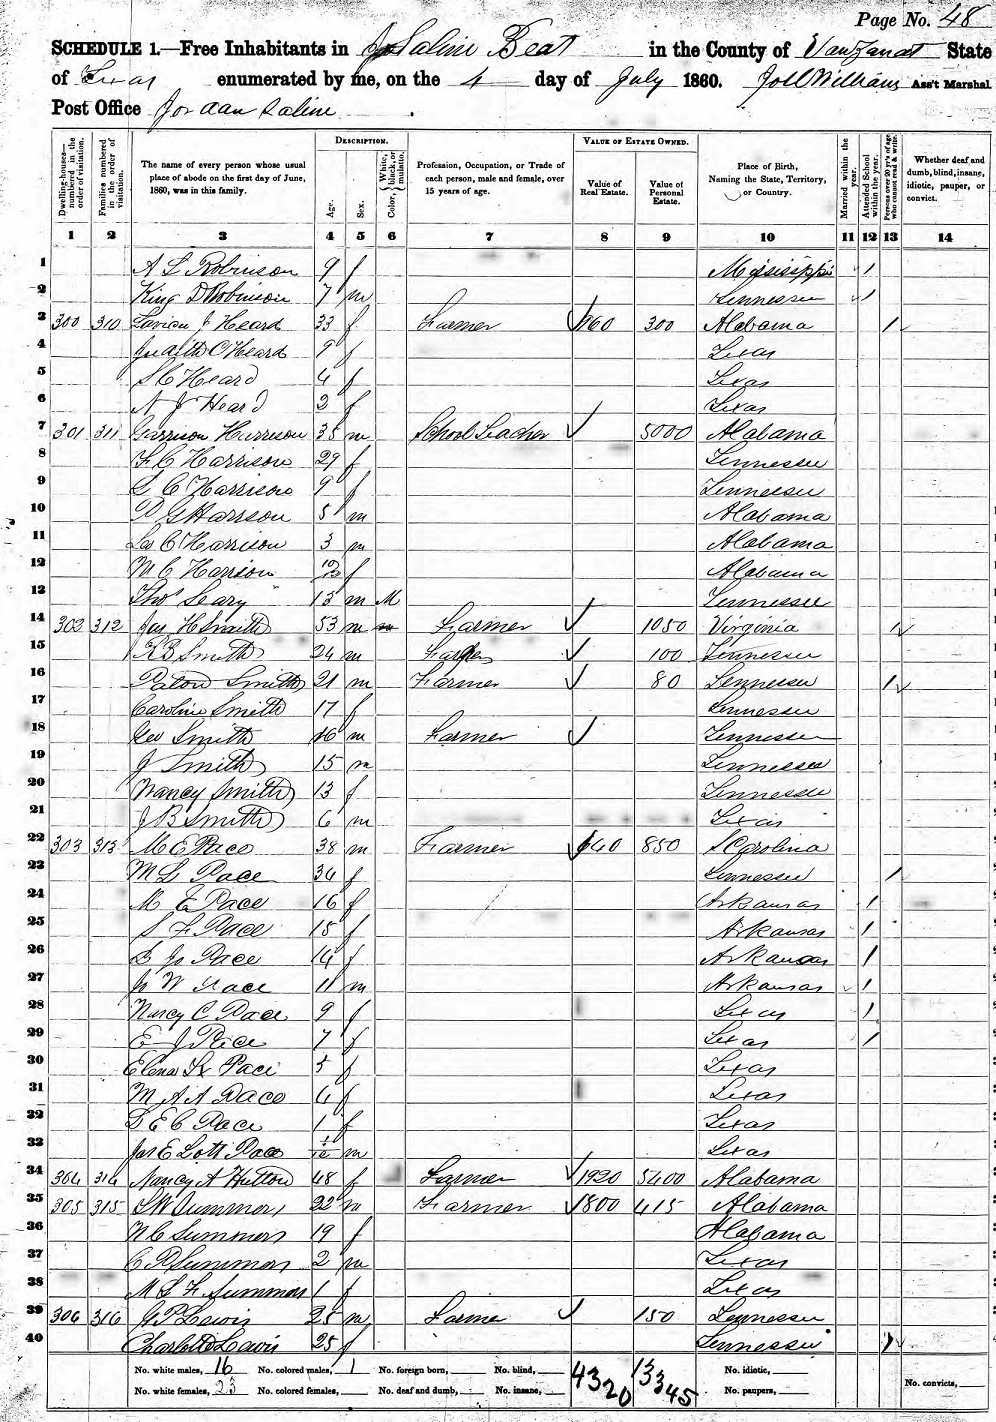 Page No. 48
SCHEDULE 1.—Free Inhabitants in Jo Saline Beat in the County of Vanzandt State
of Texas enumerated by me, on the 4 day of July 1860. Williams Ass't Marshal.
Post Office Jordan Saline.
DESCRIPTION. VALUE OF ESTATE OWNED.
Dwelling-houses—numbered in the order of visitation. Families numbered in the order of visitation. The name of every person whose usual place of abode on the first day of June, 1860, was in this family. Age. Sex. Color, { White, black, or mulatto. Profession, Occupation, or Trade of each person, male and female, over 15 years of age. Value of Real Estate. Value of Personal Estate. Place of Birth, Naming the State, Territory, or Country. Married within the year. Attended School within the year. Persons over 20 y'rs of age who cannot read & write. Whether deaf and dumb, blind, insane, idiotic, pauper, or convict.
1 2 3 4 5 6 7 8 9 10 11 12 13 14
1 A L Robinson 9 f Mississippi /
2 King D Robinson 7 m Tennessee /
3 300 310 J Heard 33 f Farmer 300 Alabama /
4 Judith C Heard 9 f Texas
5 S C Heard 4 f Texas
6 N J Heard 2 f Texas
7 301 311 Garrison Harrison 35 m School Teacher 5000 Alabama
8 F C Harrison 29 f Tennessee
9 S C Harrison 9 f Tennessee
10 G Harrison 5 m Alabama
11 C Harrison 3 m Alabama
12 M C Harrison f Alabama
13 Thos Seary 13 m M Tennessee
14 302 312 Jas H Smith 53 m Farmer 1050 Virginia /
15 R B Smith 24 m 100 Tennessee
16 Paton Smith 21 m Farmer 80 Tennessee /
17 Caroline Smith 17 f Tennessee
18 Geo Smith 16 m Farmer Tennessee
19 J Smith 15 m Tennessee
20 Nancy Smith 13 f Tennessee
21 J B Smith 6 m Texas
22 303 313 M E Pace 38 m Farmer 640 850 S Carolina
23 M L Pace 34 f Tennessee /
24 M E Pace 16 f Arkansas /
25 S F Pace 15 f Arkansas /
26 B Jo Pace 14 f Arkansas /
27 Jo W Pace 11 m Arkansas /
28 Nancy C Pace 9 f Texas /
29 E J Pace 7 f Texas /
30 Elena Pace 5 f Texas
31 M A A Pace 4 f Texas
32 E C Pace 1 f Texas
33 Jas E Lott Pace m Texas
34 304 314 Nancy A Hutton 48 f Farmer 1920 5400 Alabama
35 305 315 S W Summons 22 m Farmer 1800 415 Alabama
36 N C Summons 19 f Alabama
37 C P Summons 2 m Texas
38 M L F Summons 1 f Texas
39 306 316 G P Lewis 25 m Farmer 150 Tennessee
40 Charlotte Lewis 25 f Tennessee /
No. white males, 16 No. colored males, 1 No. foreign born, No. blind, 4320 13345 No. idiotic,
No. white females, 23 No. colored females, No. deaf and dumb, No. insane, No. paupers, No. convicts,